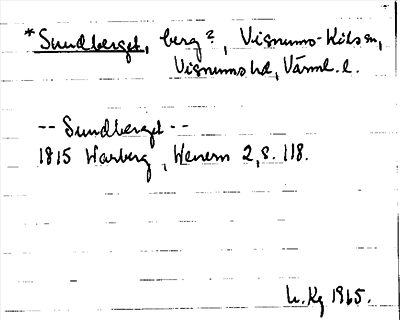 *Sundberget, berg?, Visnums-Kils sn,
Visnums hd, Värml. l.
-- Sundberget --
1815 Warberg, Wenern 2, s. 118.
L. Kg 1965.